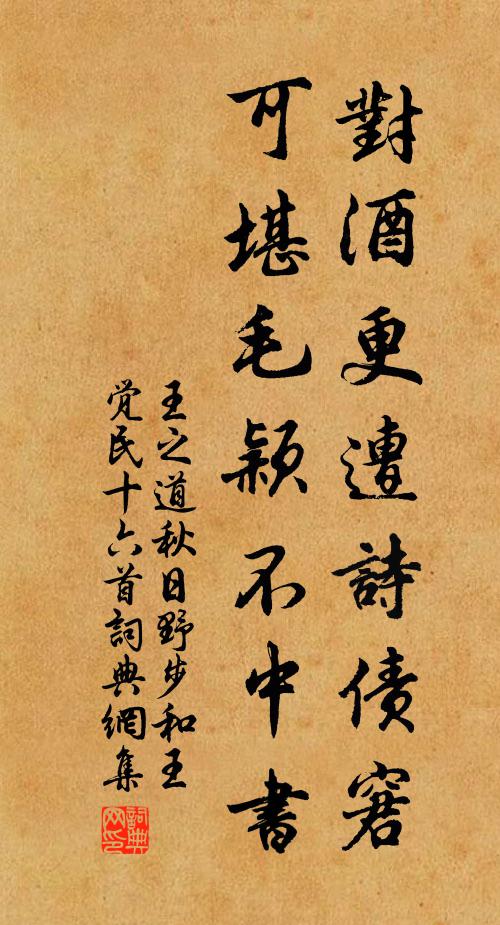 對酒更遭詩債窘
可堪毛穎不中書
王之道秋日野步和王
覚民十六首詞典網集
詞典网印